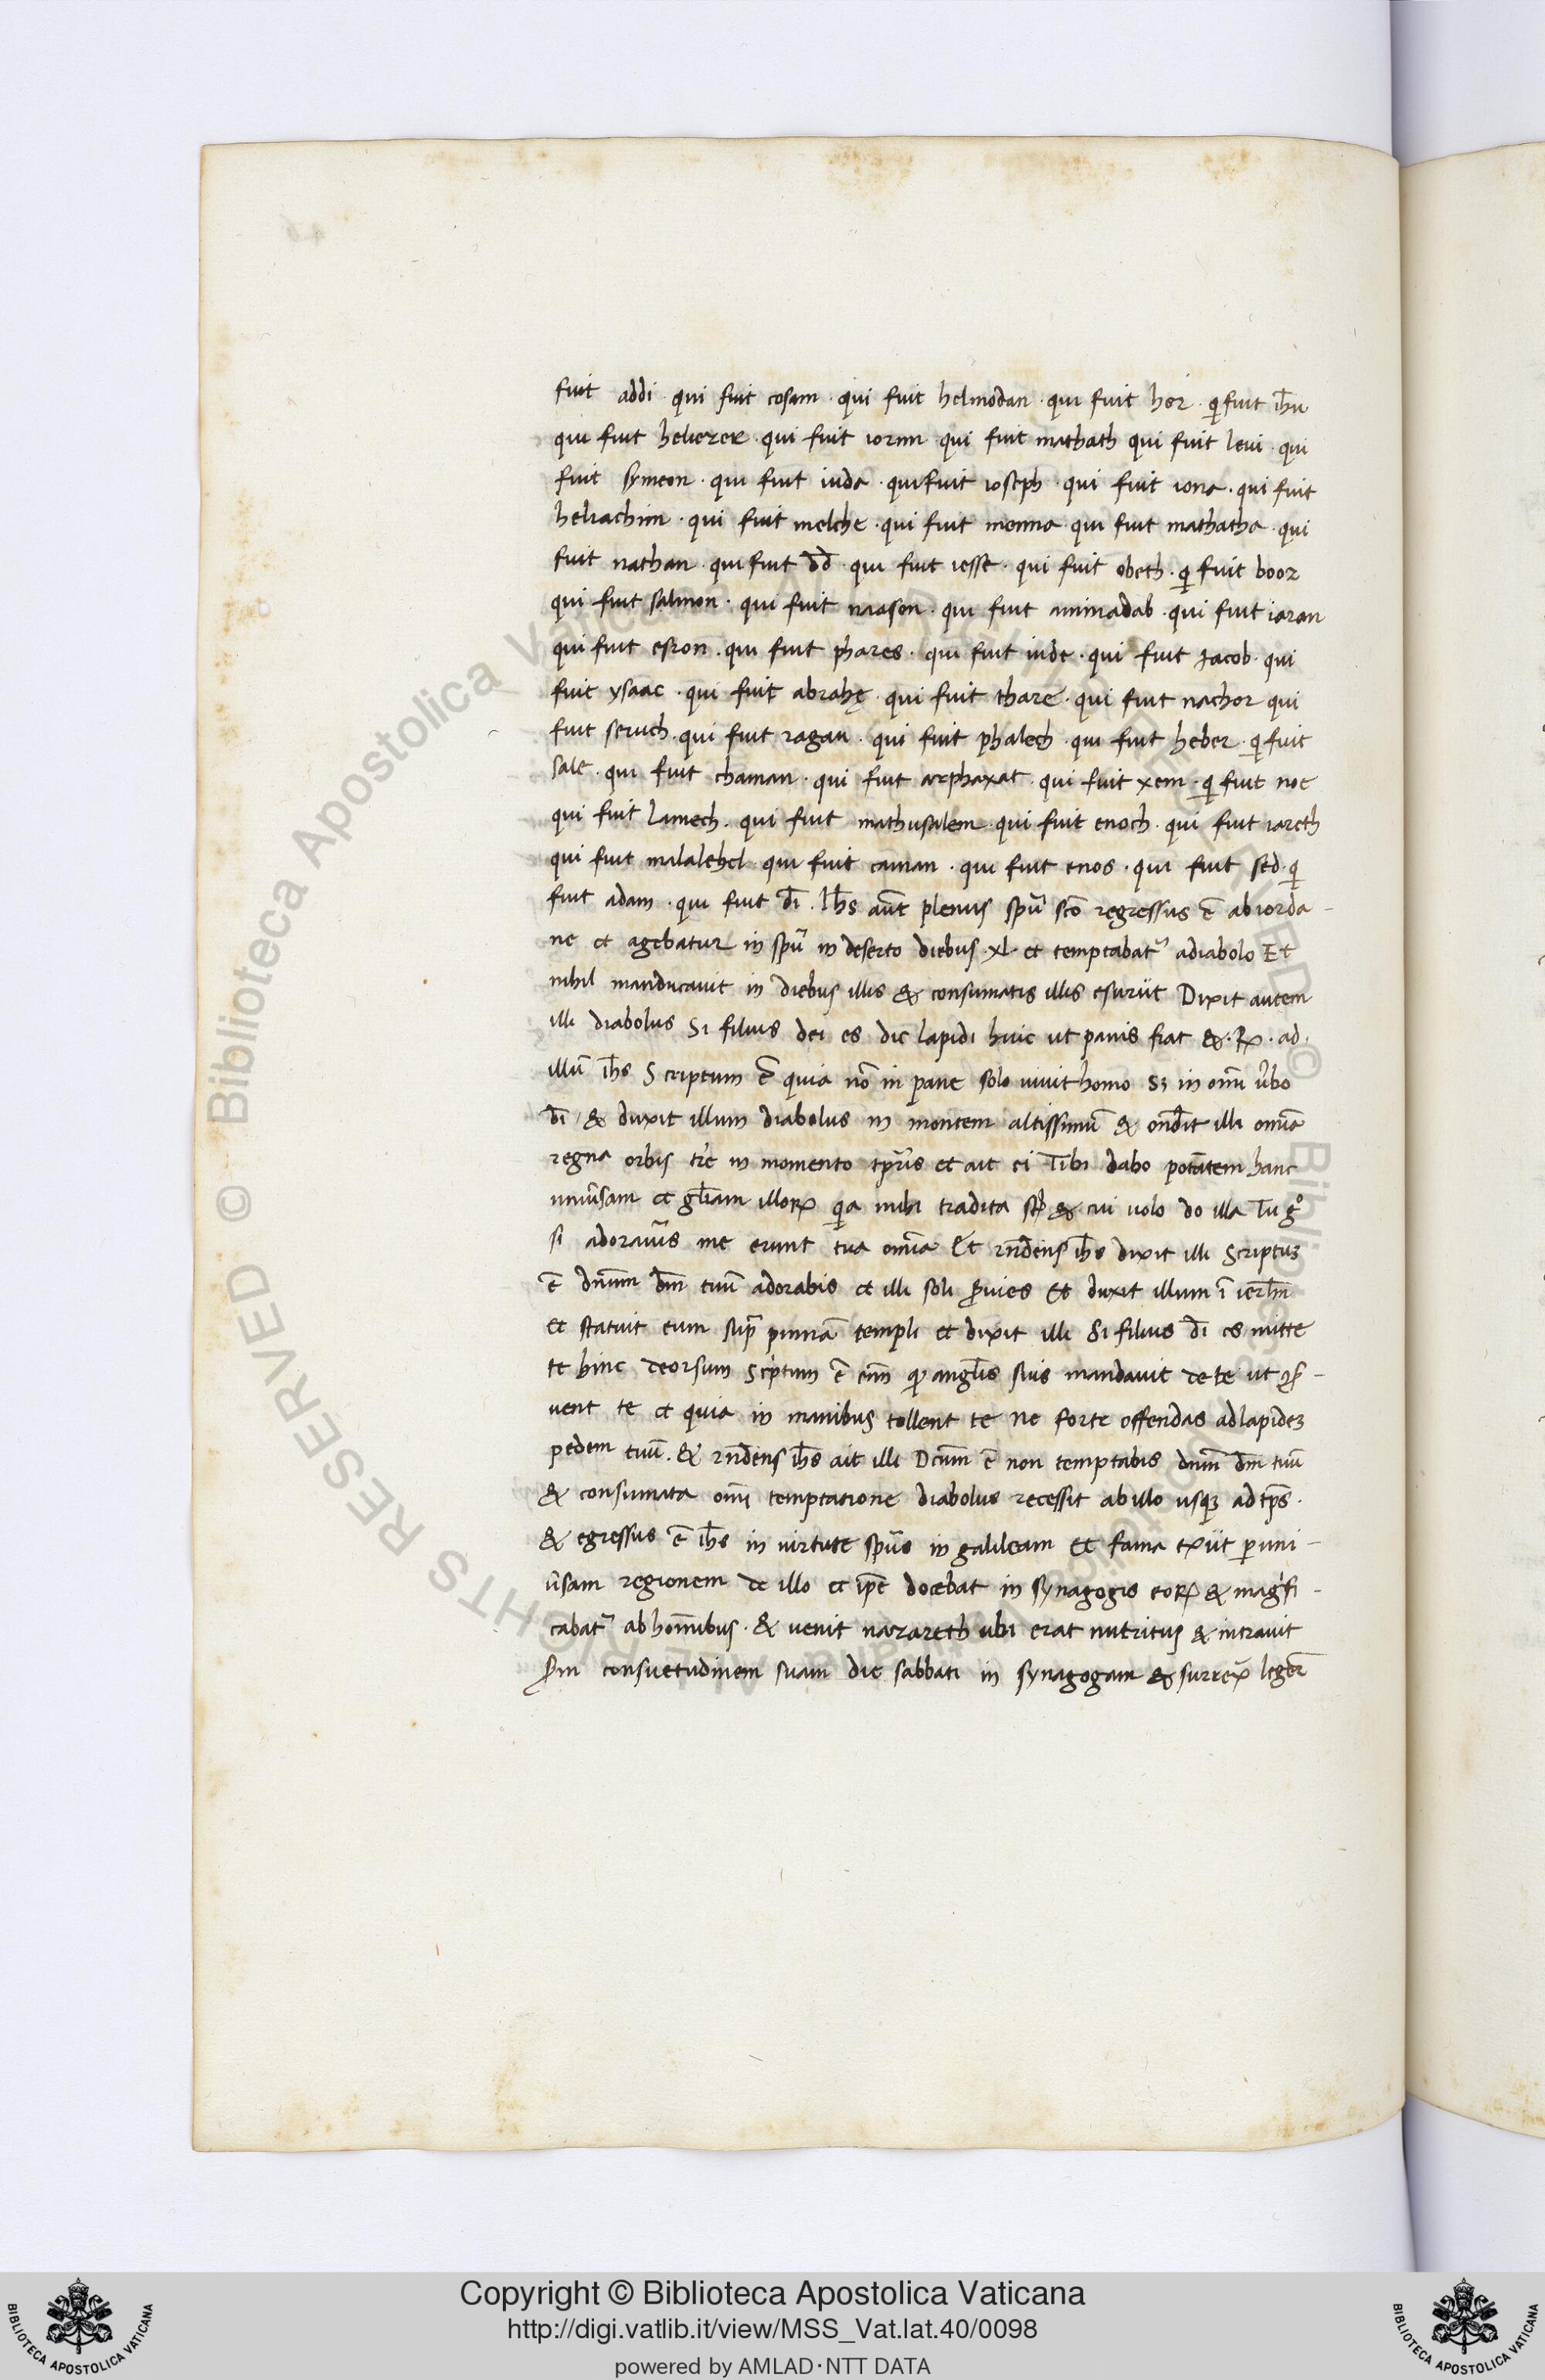 fuit addi · qui fuit cosam · qui fuit helmodan · qui fuit her · qi fuit ih̅u
qui fuit heliezer · qui fuit iorim qui fuit mathath qui fuit leui · qui
fuit symeon · qui fuit iuda · qui fuit ioseph · qui fuit iona · qui fuit
heliachim · qui fuit melche · qui fuit menna · qui fuit mathatha · qui
fuit nathan · qui fuit dd̅ · qui fuit iesse · qui fuit obeth · qi fuit booz
qui fuit salmon · qui fuit naason · qui fuit aminadab · qui fuit iaran
qui fuit esron · qui fuit phares · qui fuit iude · qui fuit Jacob · qui
fuit ysaac · qui fuit abrahę · qui fuit thare · qui fuit nachor qui
fuit seruch · qui fuit ragau · qui fuit phalech · qui fuit heber · qi fuit
sale · qui fuit chainan · qui fuit arphaxat · qui fuit xem · qi fuit noe
qui fuit Lamech · qui fuit mathusalem · qui fuit enoch · qui fuit iareth
qui fuit malalehel · qui fuit cainan · qui fuit enos · qui fuit sed · qi
fuit adam · qui fuit di̅ · Ih̅s aut̅ plenus spu̅ sco̅ regressus e̅ ab iorda-
ne et agebatur in spu̅ in deserto diebus · xl · et temptabat᷑ adiabolo Et
nihil manducauit in diebus illis & consumatis illis esuriit Dixit autem
illi diabolus Si filius dei es dic lapidi huic ut panis fiat & · R̵ · ad ·
illu̅ ih̅s Scriptum e̅ quia no̅ in pane solo uiuit homo sꝫ in omi̅ u̅bo
di̅ / & duxit illum diabolus in montem altissimu̅ & ond̅it illi omi̅a
regna orbis tr̅e in momento tpr̅is et ait ei Tibi dabo potat̅em hanc
uniu̅sam et gl̅iam illoꝝ qa mihi tradita st̅ & cui uolo do illa Tu g°
si adorau̅is me erunt tua omi̅a Et rn̅dens ih̅s dixit illi Scriptuꝫ
e̅ dn̅um dm̅ tuu̅ adorabis et illi soli s̅uies Et duxit illum i̅ ierl̅m
et statuit eum sup̅ pinna̅ templi et dixit illi Si filius di̅ es mitte
te hinc deorsum Scp̅tum e̅ eni̅ qꝫ angl̅is suis mandauit de te ut 9s̅-
uent te et quia in manibus tollent te ne forte offendas ad lapideꝫ
pedem tuu̅ . & rn̅dens ih̅s ait illi Dcu̅m e̅ non temptabis dnu̅m dm̅ tuu̅
& consumata omi̅ temptatione diabolus recessit ab illo usqꝫ ad tp̅s ·
& egressus e̅ ih̅s in uirtute spu̅s in galileam Et fama exiit p uni-
u̅sam regionem de illo et ip̅e docebat in synagogis eoꝝ & magi̅fi-
cabat᷑ ab hom̅nibus · & uenit nazareth ubi erat nutritus & intrauit
s̅m consuetudinem suam die sabbati in synagogam & surrex̅ leger̅
Copyright © Biblioteca Apostolica Vaticana
http://digi.vatlib.it/view/MSS_Vat.lat.40/0098
powered by AMLAD·NTT DATA
BIBLIOTECA APOSTOLICA VATICANA
BIBLIOTECA APOSTOLICA VATICANA